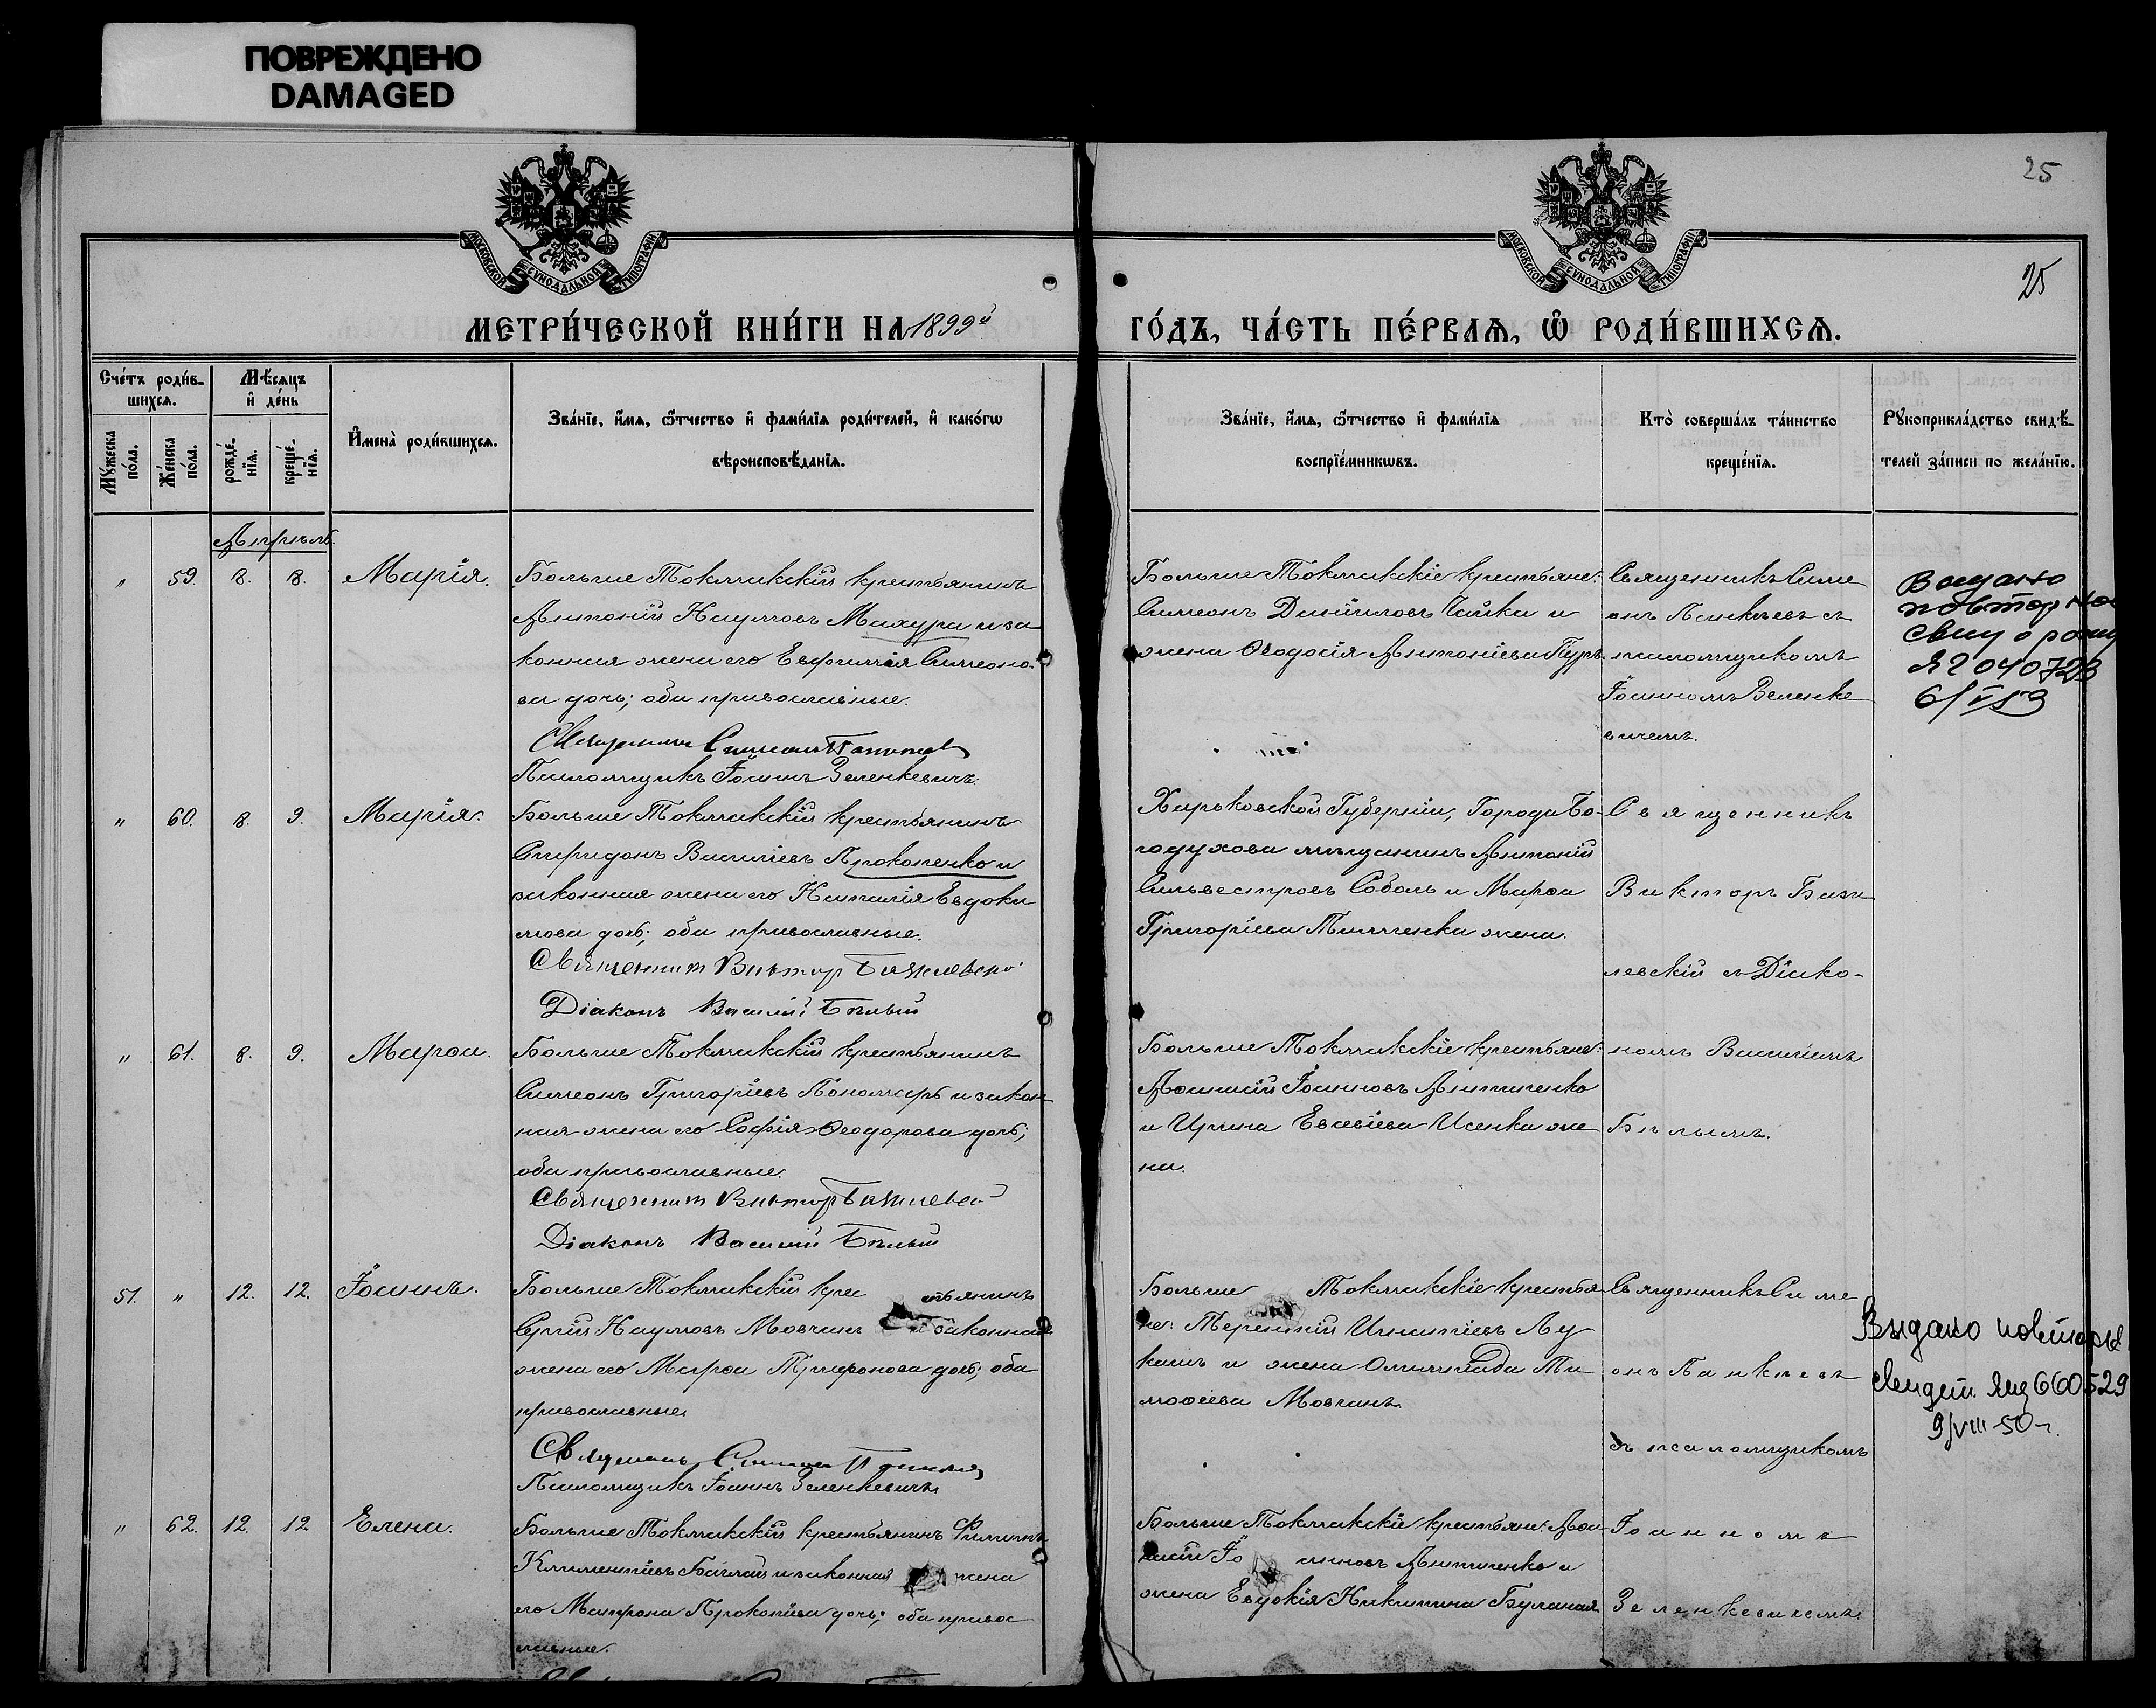 ПОВРЕЖДЕНО
DAMAGED
25
25
МОСКОВСКОЙ СѴНОДАЛЬНОЙ ТИПОГРАФІИ
МОСКОВСКОЙ СѴНОДАЛЬНОЙ ТИПОГРАФІИ
МЕТРИ́ЧЕСКОЙ КНИ́ГИ НА 1899й ГО́ДЪ, ЧА́СТЬ ПЕ́РВАѦ, Ѡ҆ РОДИ́ВШИХСѦ.
Сче́тъ роди́в-
шихсѧ.
Мѣ́сѧцъ
и҆ де́нь
Мꙋ́жеска
по́ла.
Же́нска
по́ла.
рожде́-
нїѧ.
креще́-
нїѧ.
И҆мена̀ роди́вшихсѧ.
Зва́нїе, и҆́мѧ, ѻ҆́тчество и҆ фами́лїѧ роди́телей, и҆ како́гѡ
вѣроисповѣ́данїѧ.
Зва́нїе, и҆́мѧ, ѻ҆́тчество и҆ фами́лїѧ
воспрїе́мникѡвъ.
Кто̀ соверша́лъ та́инство
креще́нїѧ.
Рꙋкоприкла́дство свидѣ́-
телей за́писи по жела́нїю.
Апрѣль.
" 59. 8. 8. Марія.
Больше Токмакскій крестьянинъ
Антоній Наумовъ Махура и за
конная жена его Евфимія Симеоно-
ва дочь; оба православные.
Священникъ Симеонъ
Псаломщикъ Іоаннъ Зеленкевичъ.
Больше Токмакскіе крестьяне:
Симеонъ Даніиловъ Чайка и
жена Ѳеодосія Антоніева
Священникъ Симе
онъ съ
псаломщикомъ
Іоанномъ Зеленке
вичемъ.
Выдано
повторно
свид о рожд
ЯЗ 040723
6/V 53
" 60. 8. 9. Марія.
Больше Токмакскій крестьянинъ
Спиридонъ Василіевъ Прокопенко и
законная жена его Наталія Евдоки
мова дочь; оба православные.
Священникъ Викторъ Базилевскій
Діаконъ Василій Бѣлый
Харьковской Губерніи, Города Бо-
годухова мѣщанинъ Антоній
Сильвестровъ Соболь и Марѳа
Григоріева жена.
Священникъ
Викторъ Бази
левскій съ Діако-
" 61. 8. 9. Марѳа.
Больше Токмакскій крестьянинъ
Симеонъ Григоріевъ Пономарь и закон
ная жена его Софія Ѳеодорова дочь;
оба православные.
Священникъ Викторъ Базилевскій
Діаконъ Василій Бѣлый
Больше Токмакскіе крестьяне:
Аѳанасій Іоанновъ Антипенко
и Ирина Евсевіева Исенка же
на.
номъ Василіемъ
Бѣлымъ.
51. " 12. 12. Іоаннъ.
Больше Токмакскій крестьянинъ
Сергій Наумовъ Мовчанъ и законная
жена его Марѳа Трифонова дочь; оба
православные
Священникъ Симеонъ
Псаломщикъ Іоаннъ Зеленкевичъ
Больше Токмакскіе крестья
не: Терентій Игнатіевъ Лу
кашъ и жена Олимпіада Ти
моѳеева Мовчанъ
Священникъ Симе
онъ
съ псаломщикомъ
Выдано повторн.
свидет. 660529
9/VIII-50 г.
" 62. 12. 12 Елена.
Больше Токмакскій крестьянинъ Филиппъ
Климентіевъ Баглай и законная жена
его Матрона Прокопіева дочь; оба правос
лавные.
Больше Токмакскіе крестьяне: Аѳа
насій Іоанновъ Антипенко и
жена Евдокія Никитина Буланая
Іоанномъ
Зеленкевичемъ